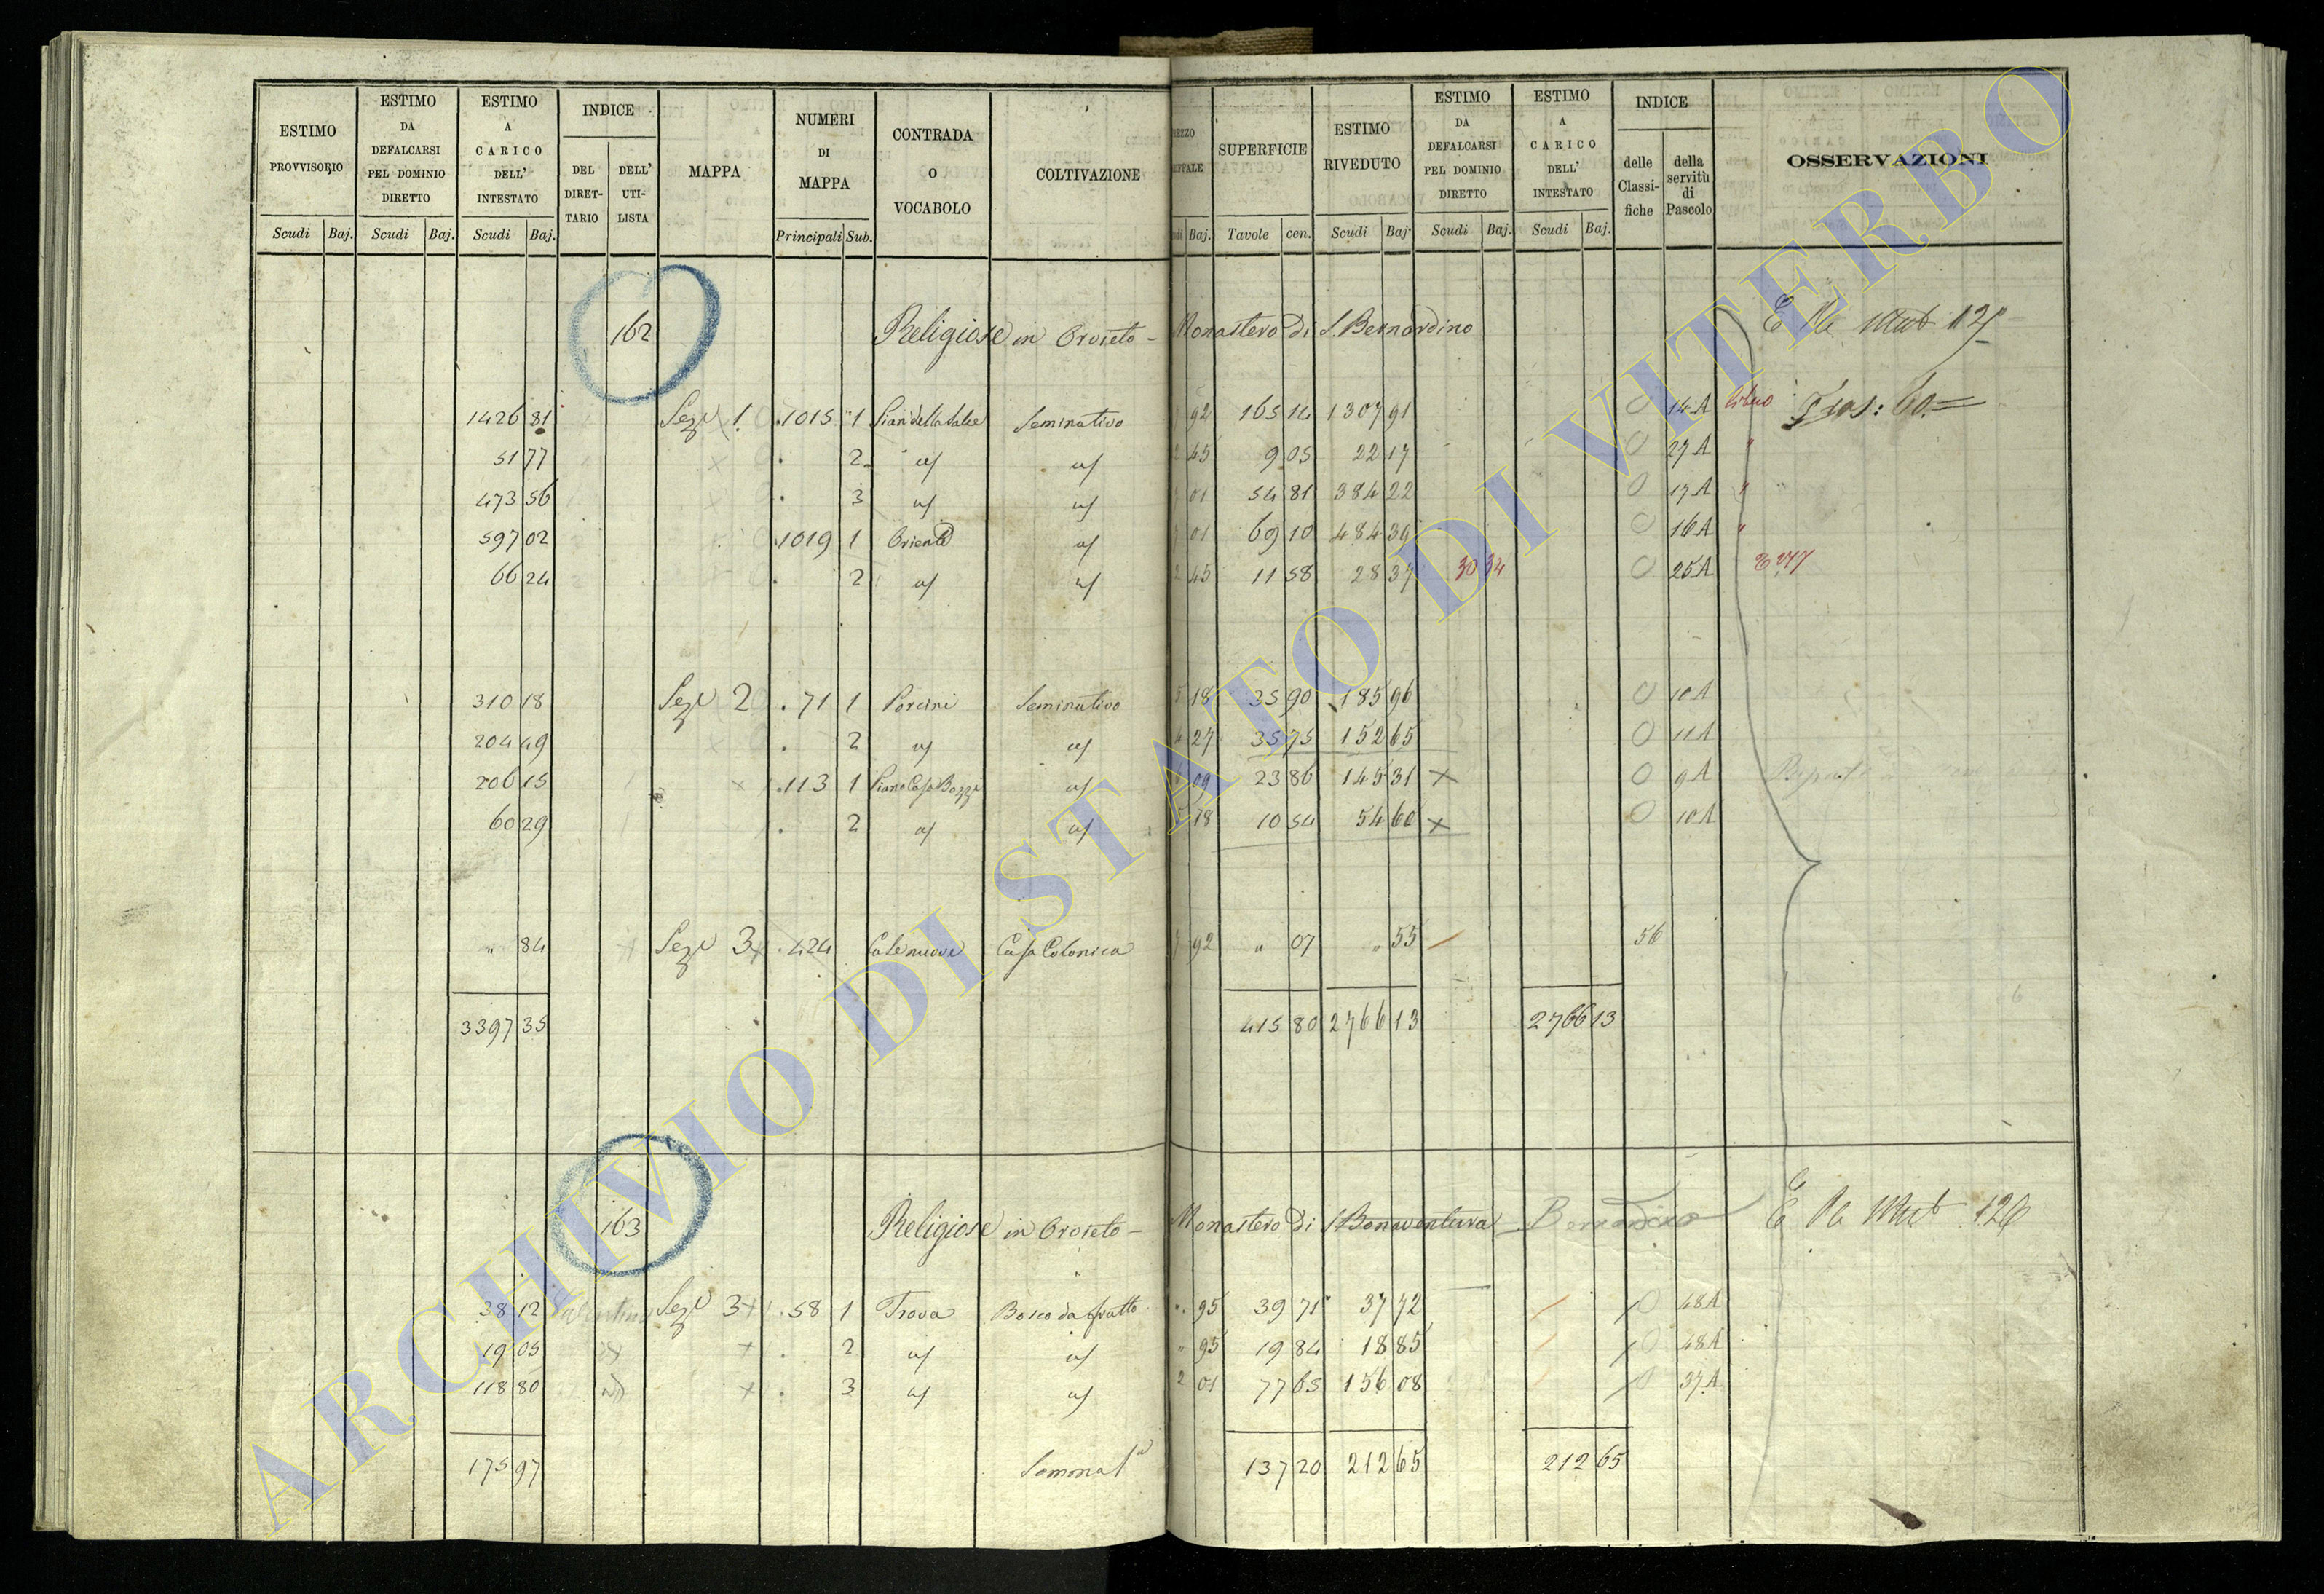 ESTIMO PROVVISORIO | ESTIMO DA DEFALCARSI PEL DOMINIO DIRETTO | ESTIMO A CARICO DELL' INTESTATO | INDICE | MAPPA | NUMERI DI MAPPA | CONTRADA O VOCABOLO | COLTIVAZIONE | SUPERFICIE | ESTIMO RIVEDUTO | ESTIMO DA DEFALCARSI PEL DOMINIO DIRETTO | ESTIMO A CARICO DELL' INTESTATO | INDICE | OSSERVAZIONI
DEL DIRETTARIO | DELL' UTILISTA | delle Classifiche | della servitù di Pascolo
Scudi | Baj. | Scudi | Baj. | Scudi | Baj. | Principali | Sub. | Baj. | Tavole | cen. | Scudi | Baj. | Scudi | Baj. | Scudi | Baj.
162 Religiose in Orvieto - Monastero di S. Bernardino
1426 81 Sez.e 1. 1015 1 Seminativo 92 165 14 1307 91 0 14 A libero
51 77 2 a/ a/ 45 9 05 22 17 0 27 A "
473 56 3 a/ a/ 01 54 81 384 22 0 17 A "
597 02 1019 1 Oriente a/ 01 69 10 484 39 0 16 A "
66 24 2 a/ a/ 2 45 11 58 28 37 30 34 0 25 A
310 18 Sez.e 2 71 1 Porcini Seminativo 5 18 35 90 185 96 0 10 A
204 49 2 a/ a/ 4 27 35 75 152 65 0 11 A
206 15 113 1 a/ 09 23 86 145 31 x 0 9 A
60 29 2 a/ a/ 5 18 10 54 54 60 x 0 10 A
" 84 Sez.e 3 424 Casenuove Casa Colonica 92 " 07 " 55 56
3397 35 415 80 2766 13 2766 13
163 Religiose in Orvieto - Monastero di S. Bonaventura Bernardino
38 12 Sez.e 3 58 1 Trova Bosco da frutto " 95 39 71 37 72 0 48 A
19 05 2 a/ a/ " 95 19 84 18 85 0 48 A
118 80 3 a/ a/ 2 01 77 65 156 08 0 37 A
175 97 137 20 212 65 212 65
ARCHIVIO DI STATO DI VITERBO